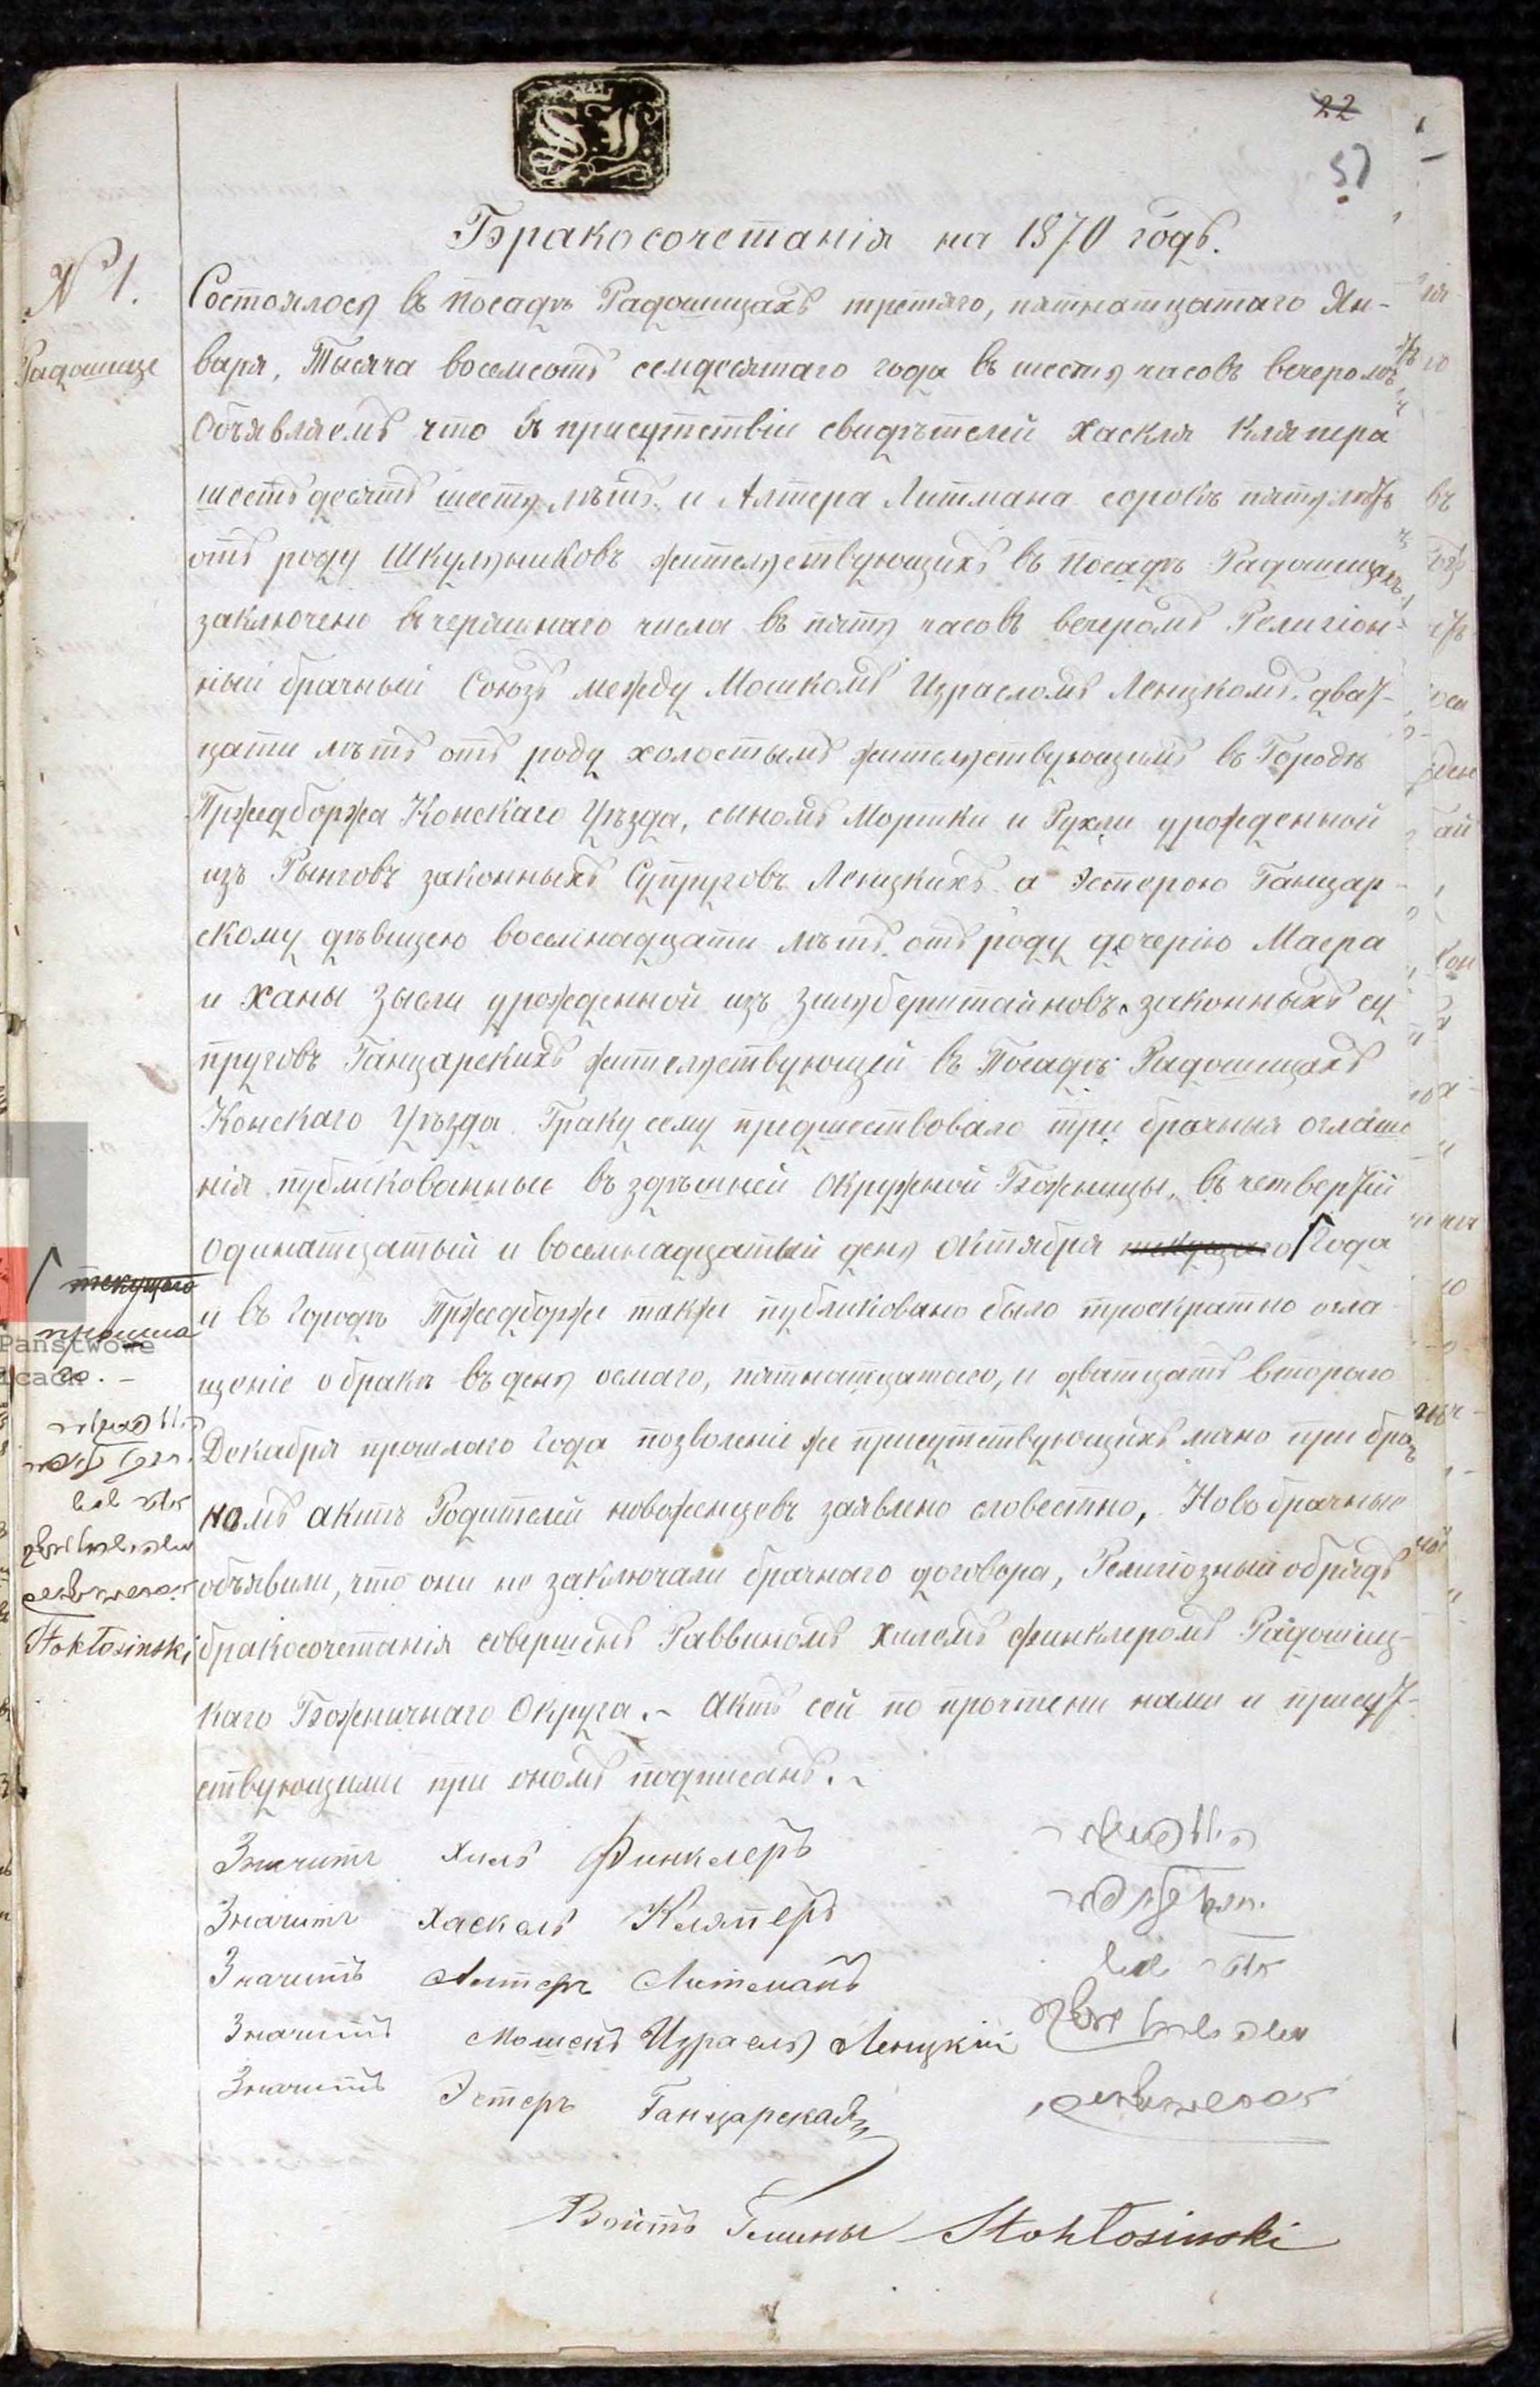 22
57
Бракосочетанія на 1870 годъ.
№ 1.
Радошице
Состоялось въ посадѣ Радошицахъ третяго, пятнатцатаго Ян-
варя, Тысяча восемсотъ семдесятаго года въ шесть часовъ вечеромъ
Объявляемъ что въ присутствіи свидѣтелей Хаскля Кляпера
шестьдесятъ шесть лѣтъ, и Алтера Литмана сорокъ пять лѣтъ
отъ роду Шкульниковъ жительствующихъ въ посадѣ Радошицахъ
заключенъ вчерашнаго числа въ пять часовъ вечеромъ Религіон-
ный брачный Союзъ между Мошкомъ Израеломъ Ленцкомъ дват-
цати лѣтъ отъ роду холостымъ жительствующимъ въ Городѣ
Пржедборжа Конскаго Уѣзда, сыномъ Морики и Рухли урожденной
изъ Рынговъ законныхъ Супруговъ Ленцкихъ а Эстерою Ганцар-
скому дѣвицею восемнадцати лѣтъ отъ роду дочерію Маера
и Ханы Зысли урожденной изъ Зильберштайновъ законныхъ су
пруговъ Ганцарскихъ жительствующей въ Посадѣ Радошицахъ
Конскаго Уѣзда. Браку сему предшествовало три брачныя оглаше
нія публикованные въ здѣшней Окружной Божницы, въ четвертій
одинатцатый и восемнадцатый день Октября текущаго Года
текущаго
прошла
го.-
и въ Городѣ Пржедборжѣ также публиковано было троекратно огла
щеніе о бракѣ въ день осмаго, пятнатцатого, и дватцатъ второго
Декабря прошлаго Года позволеніе же присутствующихъ лично при брач
номъ актѣ Родителей новоженцевъ заявлено словестно, Новобрачные
объявили, что они не заключали брачнаго договора, Религіозный обрядъ
Stokłosinski
бракосочетанія совершенъ Раввиномъ Хилемъ Финклеромъ Радошиц-
каго Божничнаго Округа.- Актъ сей по прочтени нами и присут-
ствующими при ономъ подписанъ.-
Значитъ Хиль Финклеръ
Значитъ Хаскель Кляперъ
Значитъ Алтеръ Литманъ
Значитъ Мошекъ Израель Ленцкій
Значитъ Эстеръ Ганцарская
Войтъ Гмины Stokłosinski
Państwowe
icach